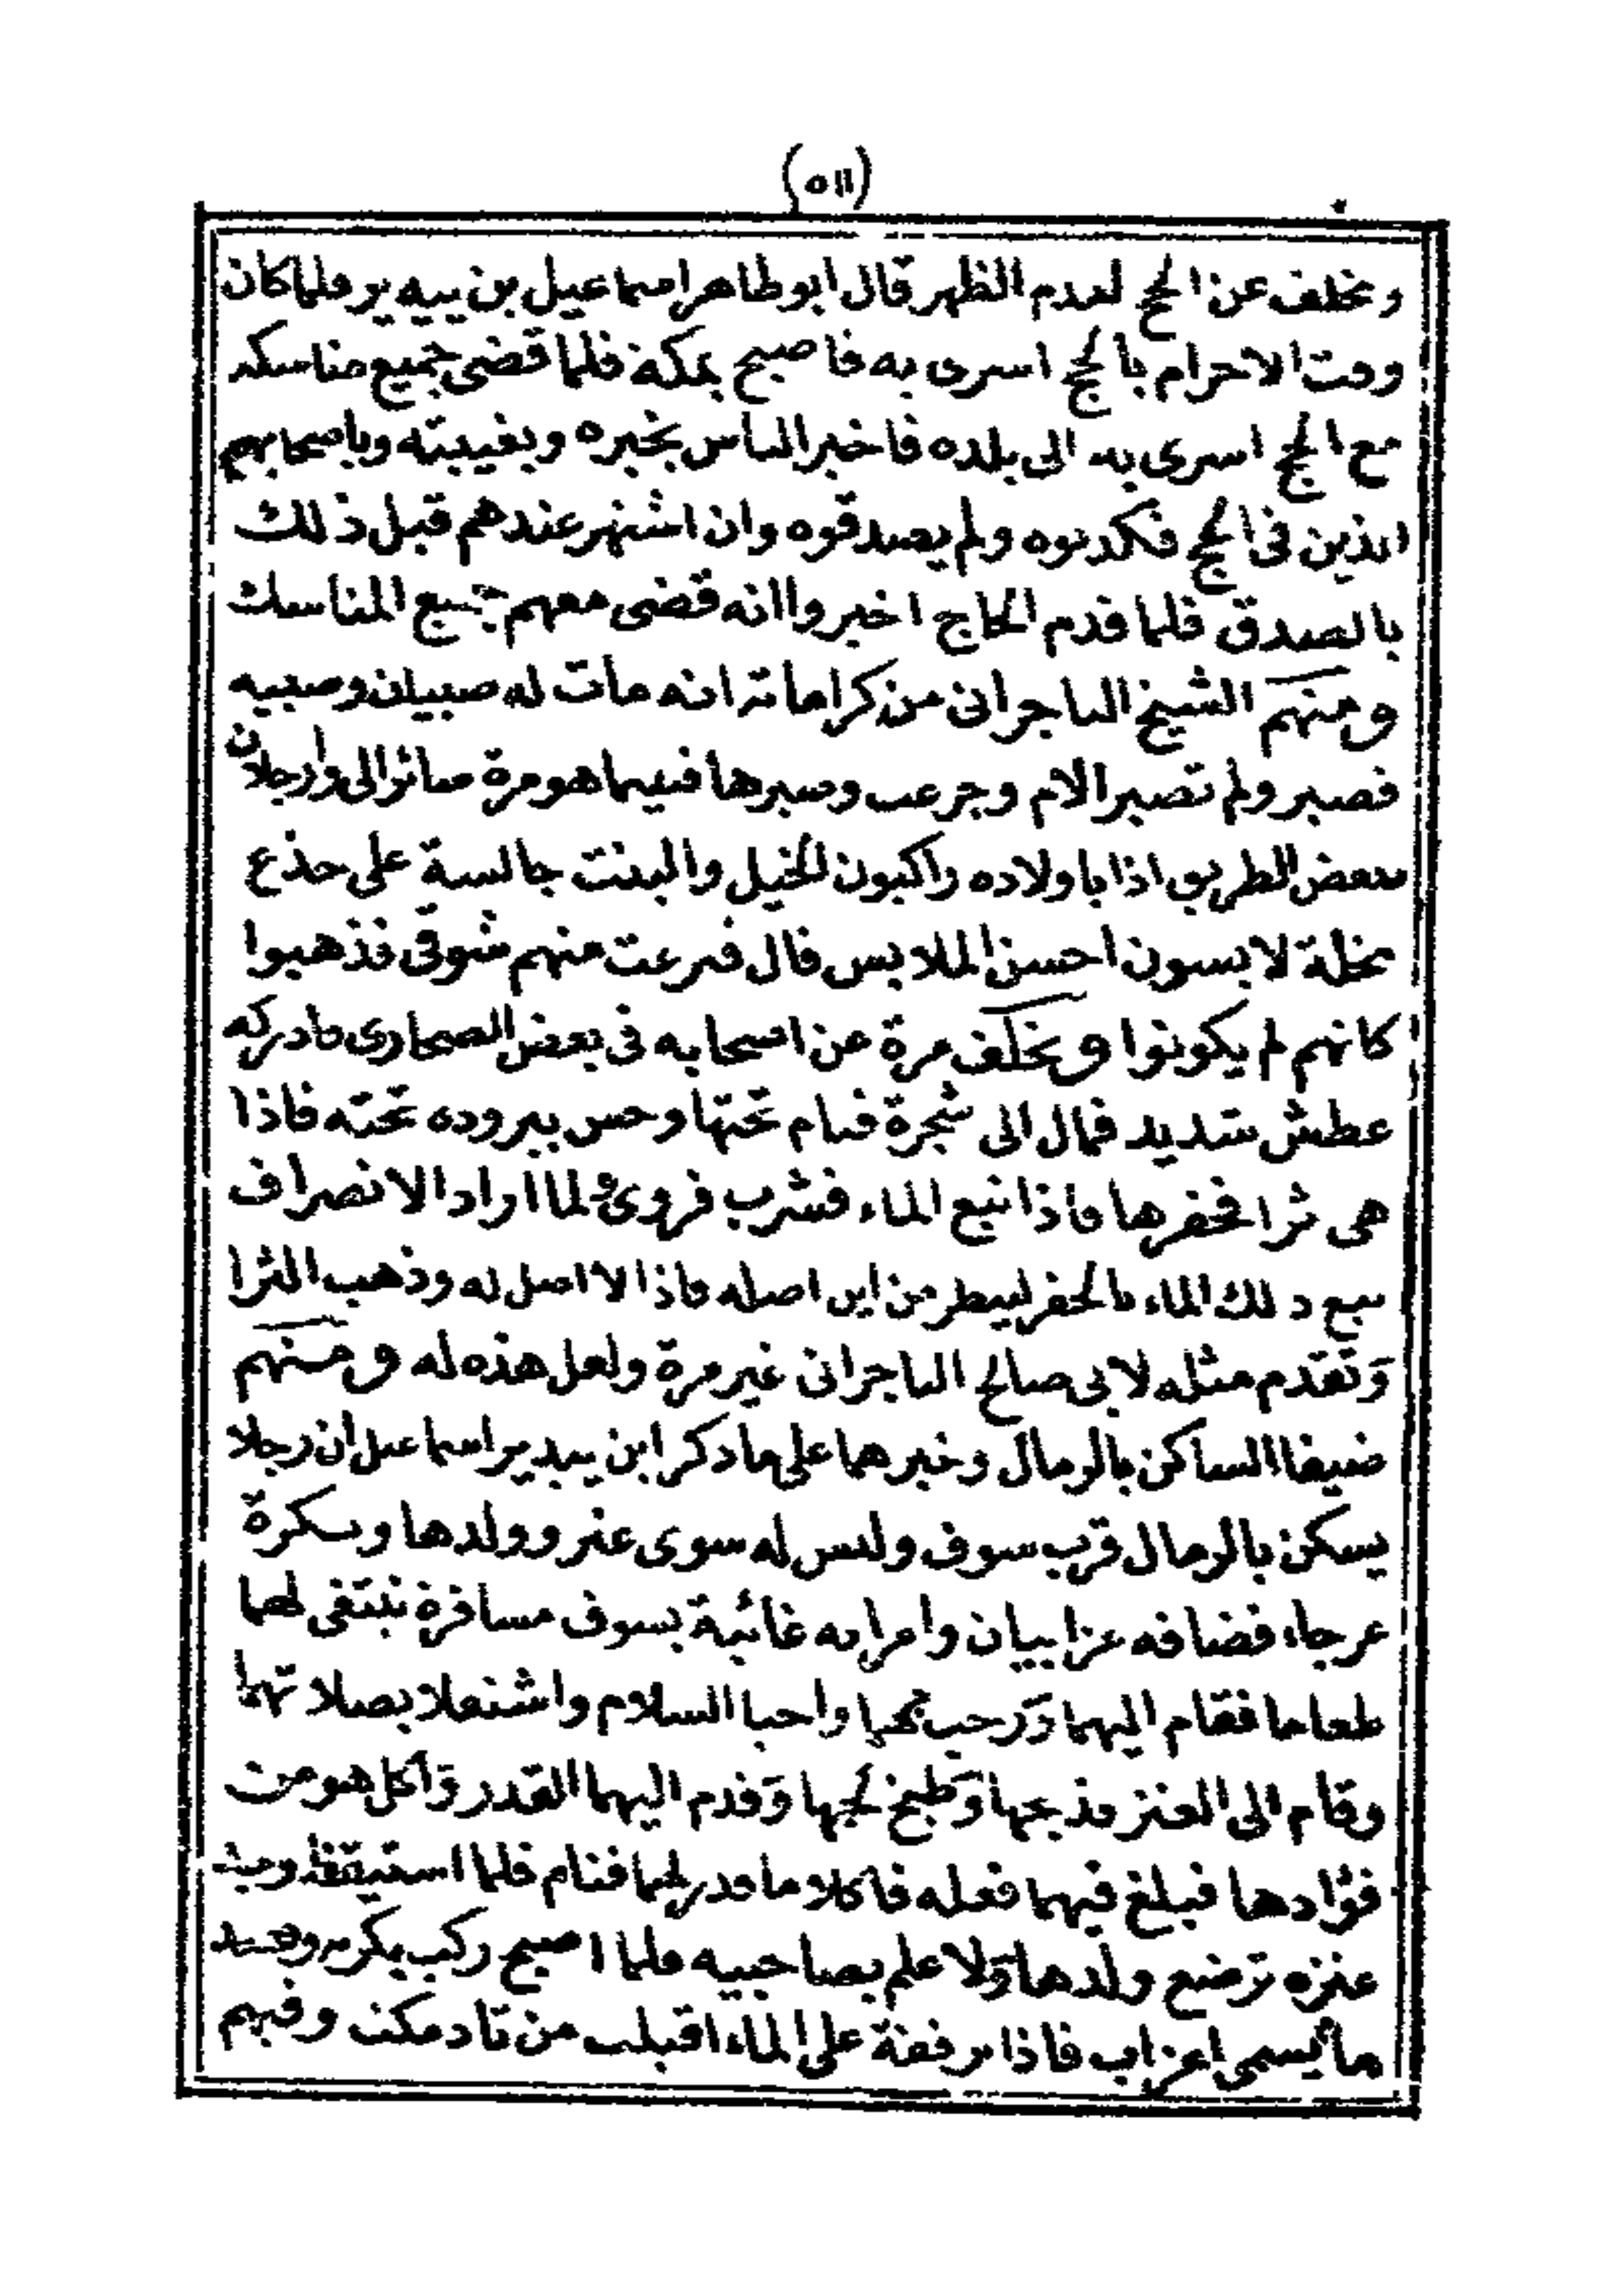 (٥١١)
وتخلف عن الحج لعدم الظهر قال ابو طاهر اسماعيل بن ييدير فلما كان
وقت الاحرام بالحج اسرى به فاصبح بمكة فلما قضى جميع مناسكه
مع الحج اسرى به الى بلده فاخبر الناس بخبره وبغيبته وباصحابهم
الذين فى الحج فكذبوه ولم يصدقوه وان اشتهر عندهم قبل ذلك
بالصدق فلما قدم الحاج اخبروا انه قضى معهم جميع المناسك
ومنهم الشيخ الباجرانى من كراماته انه مات له صبيان وصبيه
فصبر ولم تصبر الام وجزعت وصبرها فبينما هو مرة سائر الى وارجلان
ببعض الطريق اذا باولاده راكبون للخيل والبنت جالسة على جذع
نخلة لابسون احسن الملابس قال فبرعت منهم شوقى فذهبوا
كانهم لم يكونوا وتخلف مرة عن اصحابه فى بعض الصحارى فادركه
عطش شديد فمال الى شجرة فنام تحتها وحس ببروده تحته فاذا
هى ثرا فحفرها فاذا نبع الماء فشرب فروى ولما اراد الانصراف
تبع ذلك الماء بالحفر لينظر من اين اصله فاذا لا اصل له وذهب الثرا
وتقدم مثله لابى صالح الباجرانى غير مرة ولعل هذه له ومنهم
ضيفا الساكن بالرمال وخبرهما على ما ذكر ابن ييدير اسماعيل ان رجلا
يسكن بالرمال قرب سوف وليس له سوى عنز وولدها وبكرة
عرجاء فضافه عزابيان وامراته غائبة بسوف مسافرة تبتغى لهما
طعاما فقام اليهما ورحب بهما واحبا السلام واشتغلا بصلاتهما
وقام الى العنز فذبحها وطبخ لحمها وقدم اليهما القدر واكل هو من
فؤادها فبلغ فيهما فعله فاكلا ما قدر لهما فنام فلما استيقظ وجد
عنزه ترضع ولدها ولا علم بصاحبيه فلما اصبح ركب بكرته وقصد
ما يسمى اعزاب فاذا برفقة على الماء اقبلت من تادمكت وفيهم